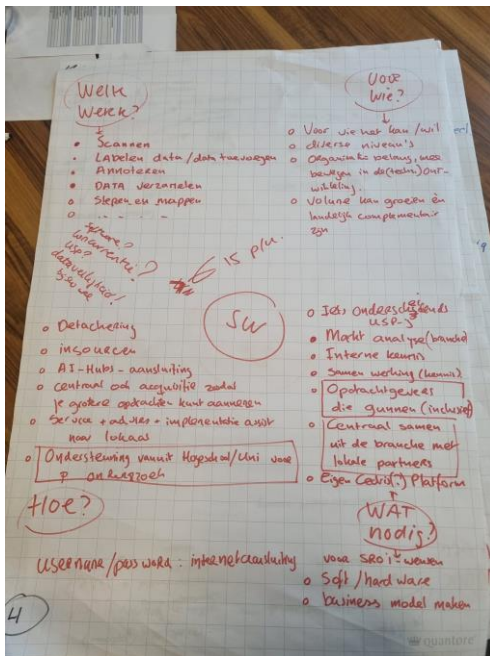 Welk
Werk?
• Scannen
• LAbelen data/data toevoegen
• Annoteren
• DATA verzamelen
• Slepen en mappen
o - - - -
Voor
wie?
o Voor wie het kan/wil
o diverse niveau's
o Organisatie belang, mee
bewegen in de (techn.) ont-
wikkeling.
o Volume kan groeien èn
landelijk complementair
zijn
concurrentie?
USP?
dataveiligheid!
?
15 p/u.
SW
o Detachering
o insourcen
o AI-Hubs-aansluiting
o centraal ook acquisitie zodat
je grotere opdrachten kunt aannemen
o Service + advies + implementatie assist
naar lokaal
o Ondersteuning vanuit Hogeschool/Uni voor
onderzoek
Hoe?
o Iets onderscheidends
USP-
• Markt analyse (branche)
o Interne kennis
o Samen werking (kennis)
o Opdrachtgevers
die gunnen (inclusief)
o Centraal samen
uit de branche met
lokale partners
o Eigen Cedris(?) Platform
WAT
nodig?
username/password: internetaansluiting
voor SROI-wensen
o Soft/hardware
o business model maken
4
quantore